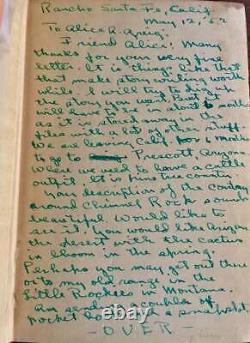 Rancho Santa Fe, Calif.
May 12, '52
To Alice R. Greig.
Friend Alice: Many
thanks for your very fine
letter. It is things like that
that make story telling worth
while. I will try to dig up
the story you want. But it
will have to a little
as it is stored away in the
files with a lot of other stuff.
We are leaving Calif. for a
to go to Prescott, Arizona
Where we used to have a little
outfit. It is fine country.
Your description of the country
around Chimney Rock sounds
beautiful. Would like to
see it. You would like
the desert with the cactus
in bloom in the spring.
Perhaps you may get out there
or to my old range in the
Little Rockies in Montana.
Am sending a couple of
pocket books and a snapshot.
- OVER -